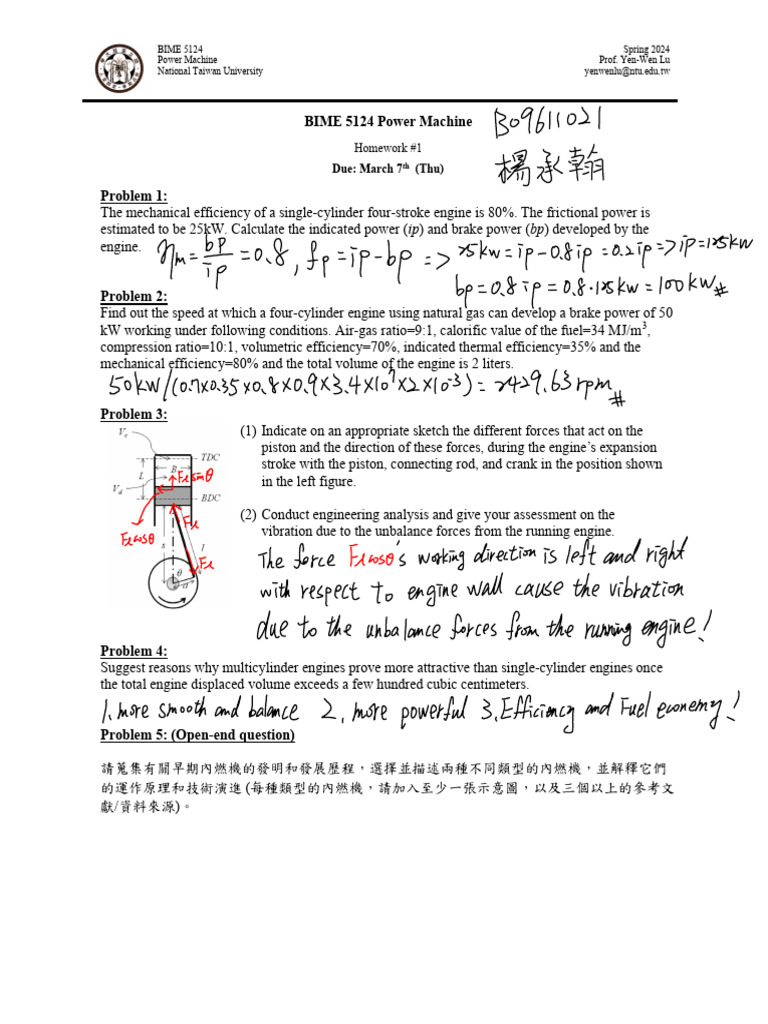 BIME 5124
Power Machine
National Taiwan University
Spring 2024
Prof. Yen-Wen Lu
yenwenlu@ntu.edu.tw
BIME 5124 Power Machine
B09611021
Homework #1
楊承翰
Due: March 7th (Thu)
Problem 1:
The mechanical efficiency of a single-cylinder four-stroke engine is 80%. The frictional power is
estimated to be 25kW. Calculate the indicated power (ip) and brake power (bp) developed by the
engine.
ηm = bp/ip = 0.8, fp = ip - bp => 25kW = ip - 0.8ip = 0.2ip => ip = 125kW
bp = 0.8ip = 0.8·125kW = 100kW #
Problem 2:
Find out the speed at which a four-cylinder engine using natural gas can develop a brake power of 50
kW working under following conditions. Air-gas ratio=9:1, calorific value of the fuel=34 MJ/m3,
compression ratio=10:1, volumetric efficiency=70%, indicated thermal efficiency=35% and the
mechanical efficiency=80% and the total volume of the engine is 2 liters.
50kW/(0.7×0.35×0.8×0.9×3.4×10^7×2×10^-3) = 2429.63 rpm #
Problem 3:
(1) Indicate on an appropriate sketch the different forces that act on the
piston and the direction of these forces, during the engine's expansion
stroke with the piston, connecting rod, and crank in the position shown
in the left figure.
Vc
TDC
B
L
Fl sinθ
Vd
BDC
Fl
Fl cosθ
s
l
Fl
θ
a
(2) Conduct engineering analysis and give your assessment on the
vibration due to the unbalance forces from the running engine.
The force Fl cosθ's working direction is left and right
with respect to engine wall cause the vibration
due to the unbalance forces from the running engine!
Problem 4:
Suggest reasons why multicylinder engines prove more attractive than single-cylinder engines once
the total engine displaced volume exceeds a few hundred cubic centimeters.
1. more smooth and balance 2. more powerful 3. Efficiency and Fuel economy!
Problem 5: (Open-end question)
請蒐集有關早期內燃機的發明和發展歷程，選擇並描述兩種不同類型的內燃機，並解釋它們
的運作原理和技術演進 (每種類型的內燃機，請加入至少一張示意圖，以及三個以上的參考文
獻/資料來源)。